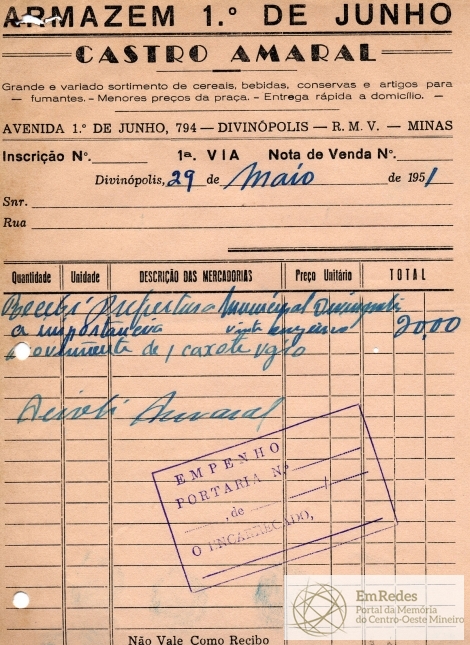 ARMAZEM 1.º DE JUNHO
CASTRO AMARAL
Grande e variado sortimento de cereais, bebidas, conservas e artigos para
— fumantes. - Menores preços da praça. - Entrega rápida a domicílio. —
AVENIDA 1.º DE JUNHO, 794 — DIVINÓPOLIS — R. M. V. — MINAS
Inscrição Nº. 1a. VIA Nota de Venda Nº.
Divinópolis, 29 de Maio de 1951
Snr.
Rua
Quantidade Unidade DESCRIÇÃO DAS MERCADORIAS Preço Unitário TOTAL
Recebi Prefeitura Municipal
a importancia vinte cruzeiros 20,00
de 1 caxote
Amaral
EMPENHO
PORTARIA Nº /
, de
O ENCARREGADO,
EmRedes
Portal da Memória
do Centro-Oeste Mineiro
Não Vale Como Recibo